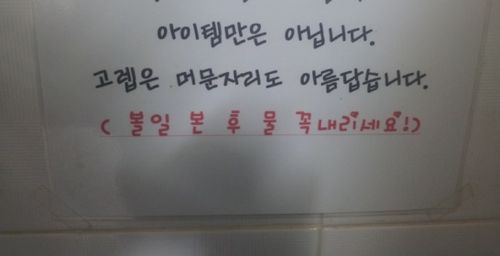 아이템만은 아닙니다.
고렙은 머문자리도 아름답습니다.
( 볼일 본 후 물 꼭내리세요!)